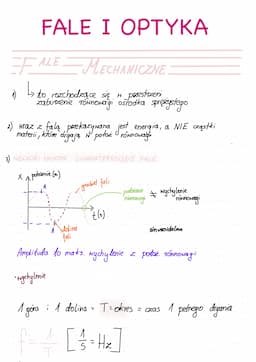 FALE I OPTYKA
FALE MECHANICZNE
1) ↳ to rozchodzące się w przestrzeni
zaburzenie równowagi ośrodka sprężystego
2) wraz z falą przekazywana jest energia, a NIE cząstki
materii, które drgają w położ. równowagi
3) WIELKOŚCI FIZYCZNE CHARAKTERYZUJĄCE FALE
X położenie (m)
grzbiet fali
położenie równowagi
wychylenie równowagi
A
A
t(s)
dolina fali
sinusoidalna
Amplituda to maks. wychylenie z położ. równowagi
• wychylenie
1 góra i 1 dolina = T = okres = czas 1 pełnego drgania
f = 1/T [1/s = Hz]